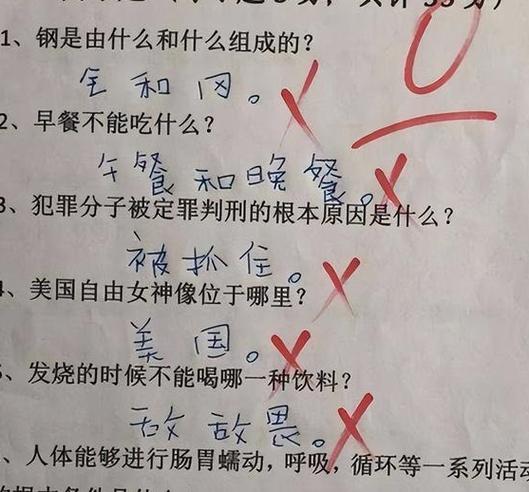 1、钢是由什么和什么组成的?
钅和冈。
2、早餐不能吃什么?
午餐和晚餐。
3、犯罪分子被定罪判刑的根本原因是什么?
被抓住。
、美国自由女神像位于哪里?
美国。
、发烧的时候不能喝哪一种饮料?
敌敌畏。
、人体能够进行肠胃蠕动,呼吸,循环等一系列活动
0